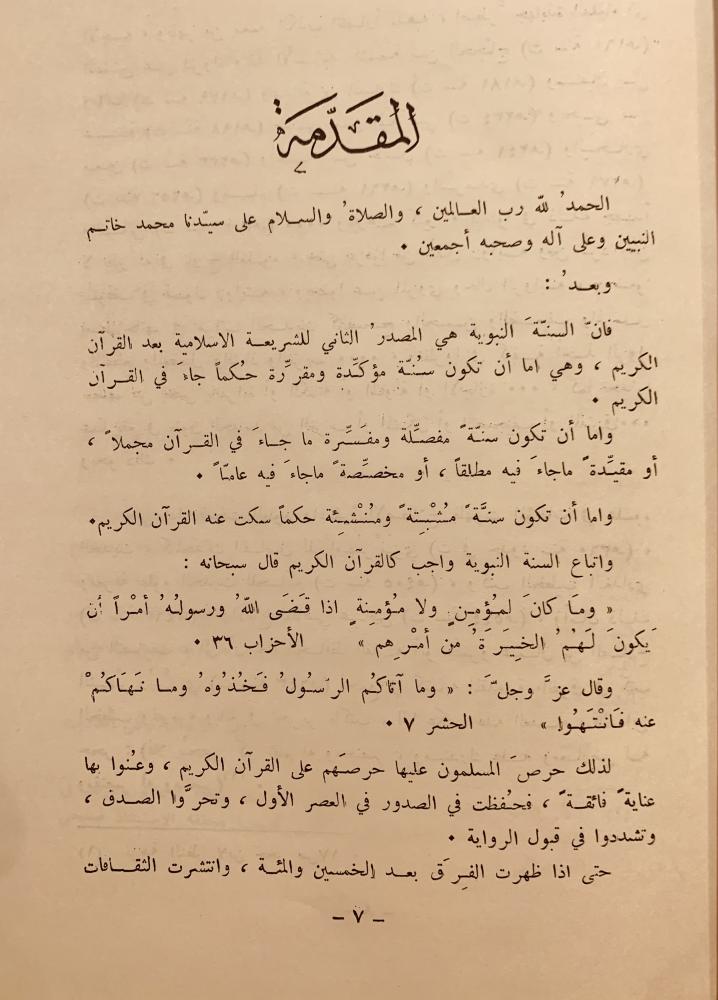 المقدّمة
الحمدُ لله رب العالمين ، والصلاةُ والسلام على سيّدنا محمد خاتم
النبيين وعلى آله وصحبه أجمعين .
وبعدُ :
فانّ السنّةَ النبوية هي المصدرُ الثاني للشريعة الاسلامية بعد القرآن
الكريم ، وهي اما أن تكون سُنّة مؤكِّدة ومقرِّرة حُكماً جاءَ في القرآن
الكريم .
واما أن تكون سنّةً مفصِّلة ومفَسِّرة ما جاءَ في القرآن مجملاً ،
أو مقيِّدةً ماجاءَ فيه مطلقاً ، أو مخصِّصةً ماجاءَ فيه عامّاً .
واما أن تكون سنَّةً مُثْبِتةً ومُنْشِئة حكماً سكت عنه القرآن الكريم.
واتباع السنة النبوية واجب كالقرآن الكريم قال سبحانه :
« وما كانَ لمؤمِنٍ ولا مؤمِنةٍ اذا قَضَى اللهُ ورسولُهُ أمْراً أن
يَكونَ لَهُمُ الخِيَرَةُ من أمْرِهم » الأحزاب ٣٦ .
وقال عزَّ وجلَّ : « وما آتاكُم الرسُولُ فَخُذُوهُ وما نَهَاكُمْ
عنه فَانْتَهُوا » الحشر ٧ .
لذلك حرصَ المسلمون عليها حرصَهم على القرآن الكريم ، وعُنوا بها
عنايةً فائقةً ، فحُفظت في الصدور في العصر الأول ، وتحرَّوا الصدق ،
وتشددوا في قبول الرواية .
حتى اذا ظهرت الفِرَق بعد الخمسين والمئة ، وانتشرت الثقافات
– ٧ –